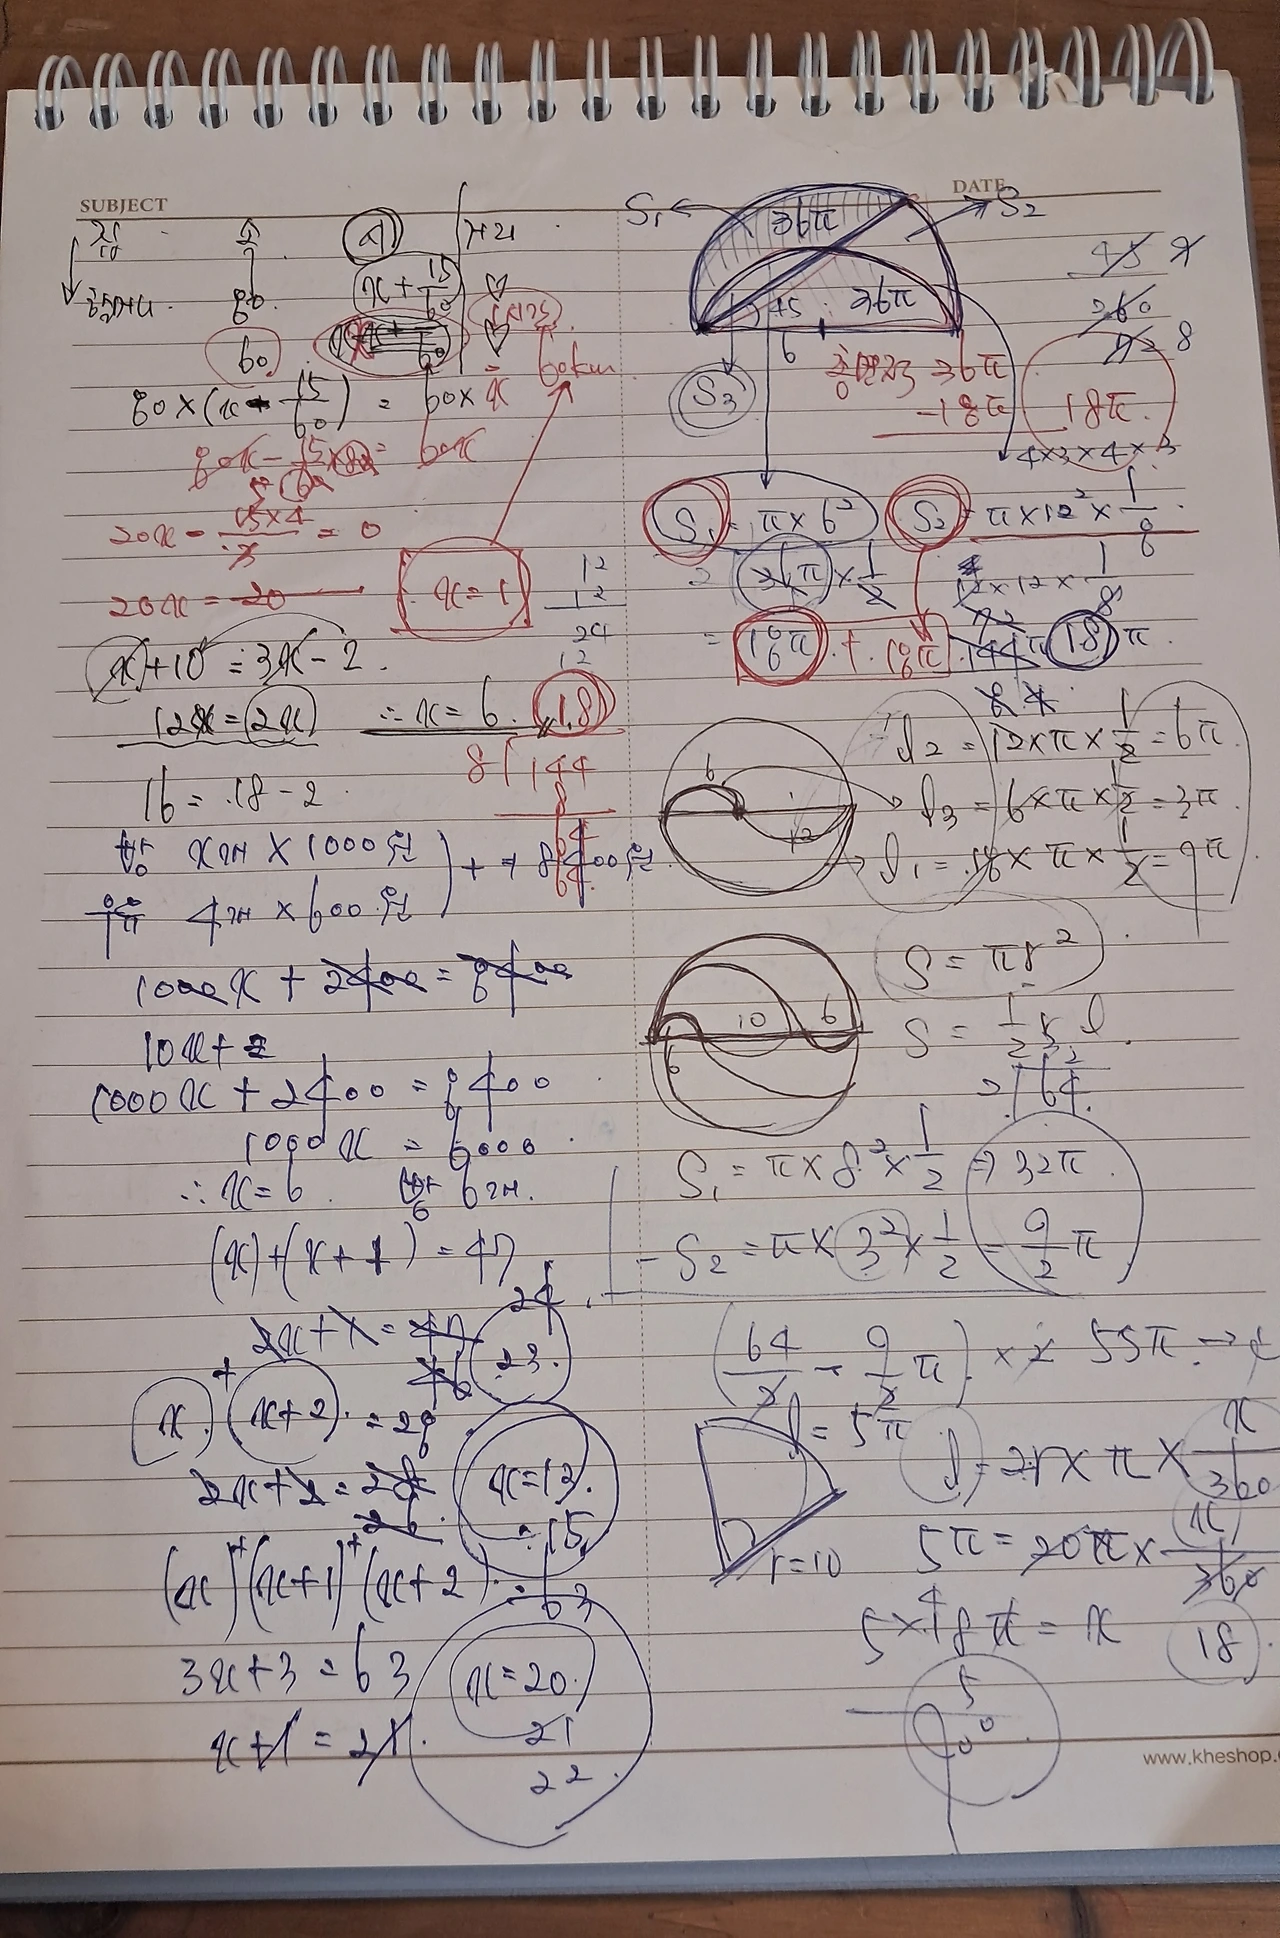 SUBJECT
80
60
x + 15/60
60km
80 × (x - 15/60) = 60 × x
80x - 15/60 × 80 = 60x
20x - 15×4/3 = 0
20x = 20
x = 1
x + 10 = 3x - 2
12 = 2x ∴ x = 6.
16 = 18 - 2
12
12
24
12
18
8 144
8
64
64
x개 × 1000원
4개 × 600원
8400원
1000x + 2400 = 8400
10x + 2
1000x + 2400 = 8400
1000x = 6000
∴ x = 6. 6개.
(x) + (x + 1) = 47
2x + 1 = 47
46
24
23.
x + (x+2) = 28
2x + 2 = 28
26
x = 13.
15
(x) + (x+1) + (x+2) = 63
3x + 3 = 63
x + 1 = 21.
x = 20.
21
22
DATE
S1
S2
36π
45
36π
6
S3
45
360
8
36π
-18π
18π.
4×3×4×3
S1 = π × 6²
= 36π × 1/2
= 18π + 18π
S2 = π × 12² × 1/8
12 × 12 × 1/8
144π 18π.
6
12
l2 = 12 × π × 1/2 = 6π
l3 = 6 × π × 1/2 = 3π
l1 = 18 × π × 1/2 = 9π
10
6
6
S = πr²
S = 1/2 r l
64
S1 = π × 8² × 1/2 ⇒ 32π.
- S2 = π × 3² × 1/2 = 9/2 π
(64/2 - 9/2 π) × 2 55π →
l = 5π
r = 10
l = 2r × π × x/360
5π = 20π × x/360
5 × 18π = x
18
5
90°
www.kheshop.